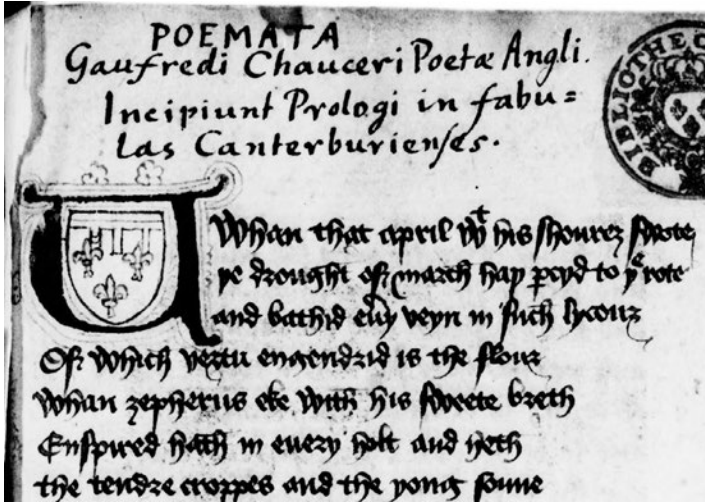 POEMATA
Gaufredi Chauceri Poetæ Angli.
Incipiunt Prologi in fabu=
las Canterburienſes.
BIBLIOTHEC
Whan that april wᵗ his ſhourez ſwote
ye drought of march hay ꝑcyd to yᵉ rote
and bathid eu̾y veyn in ſuch lycour
Of which vertu engendrid is the flour
Whan zepherus eke with his ſweete breth
Enſpired hath in euery holt and heth
the tendre croppes and the yong ſonne